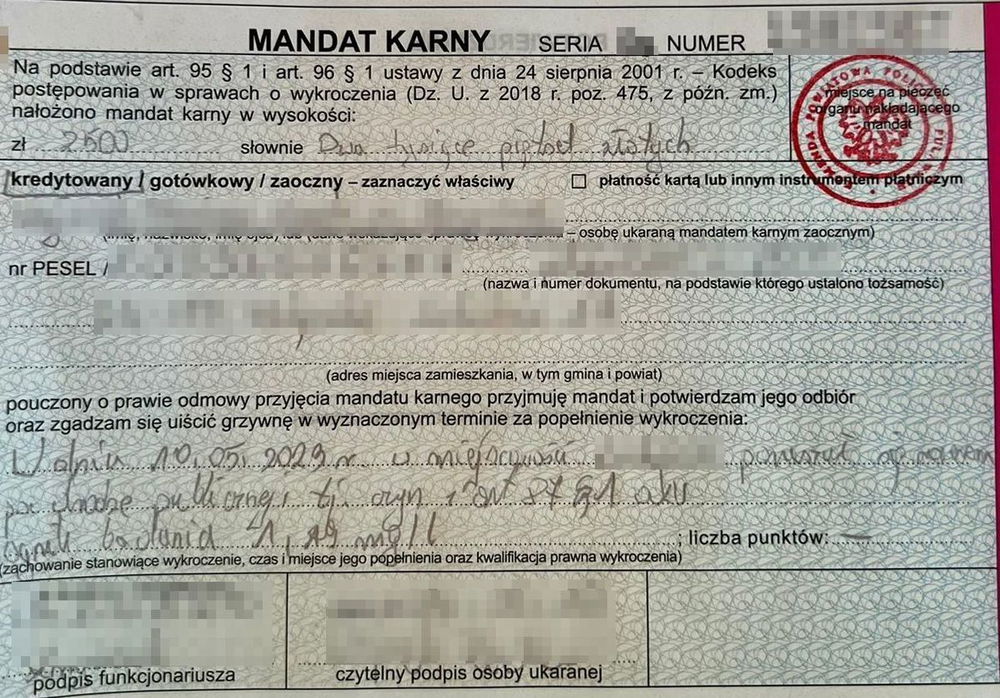 MANDAT KARNY SERIA NUMER
Na podstawie art. 95 § 1 i art. 96 § 1 ustawy z dnia 24 sierpnia 2001 r. – Kodeks
postępowania w sprawach o wykroczenia (Dz. U. z 2018 r. poz. 475, z późn. zm.)
nałożono mandat karny w wysokości:
miejsce na pieczęć
organu nakładającego
mandat
zł 2500 słownie Dwa tysiące pięćset złotych
kredytowany / gotówkowy / zaoczny – zaznaczyć właściwy
płatność kartą lub innym instrumentem płatniczym
– osobę ukaraną mandatem karnym zaocznym)
nr PESEL /
(nazwa i numer dokumentu, na podstawie którego ustalono tożsamość)
(adres miejsca zamieszkania, w tym gmina i powiat)
pouczony o prawie odmowy przyjęcia mandatu karnego przyjmuję mandat i potwierdzam jego odbiór
oraz zgadzam się uiścić grzywnę w wyznaczonym terminie za popełnienie wykroczenia:
W dniu 10.05.2023 r. w miejscowości poruszał się rowerem
po drodze publicznej tj. czyn z art 87 §1 a kw
wynik badania 1,19 mg/l ; liczba punktów: —
(zachowanie stanowiące wykroczenie, czas i miejsce jego popełnienia oraz kwalifikacja prawna wykroczenia)
podpis funkcjonariusza
czytelny podpis osoby ukaranej